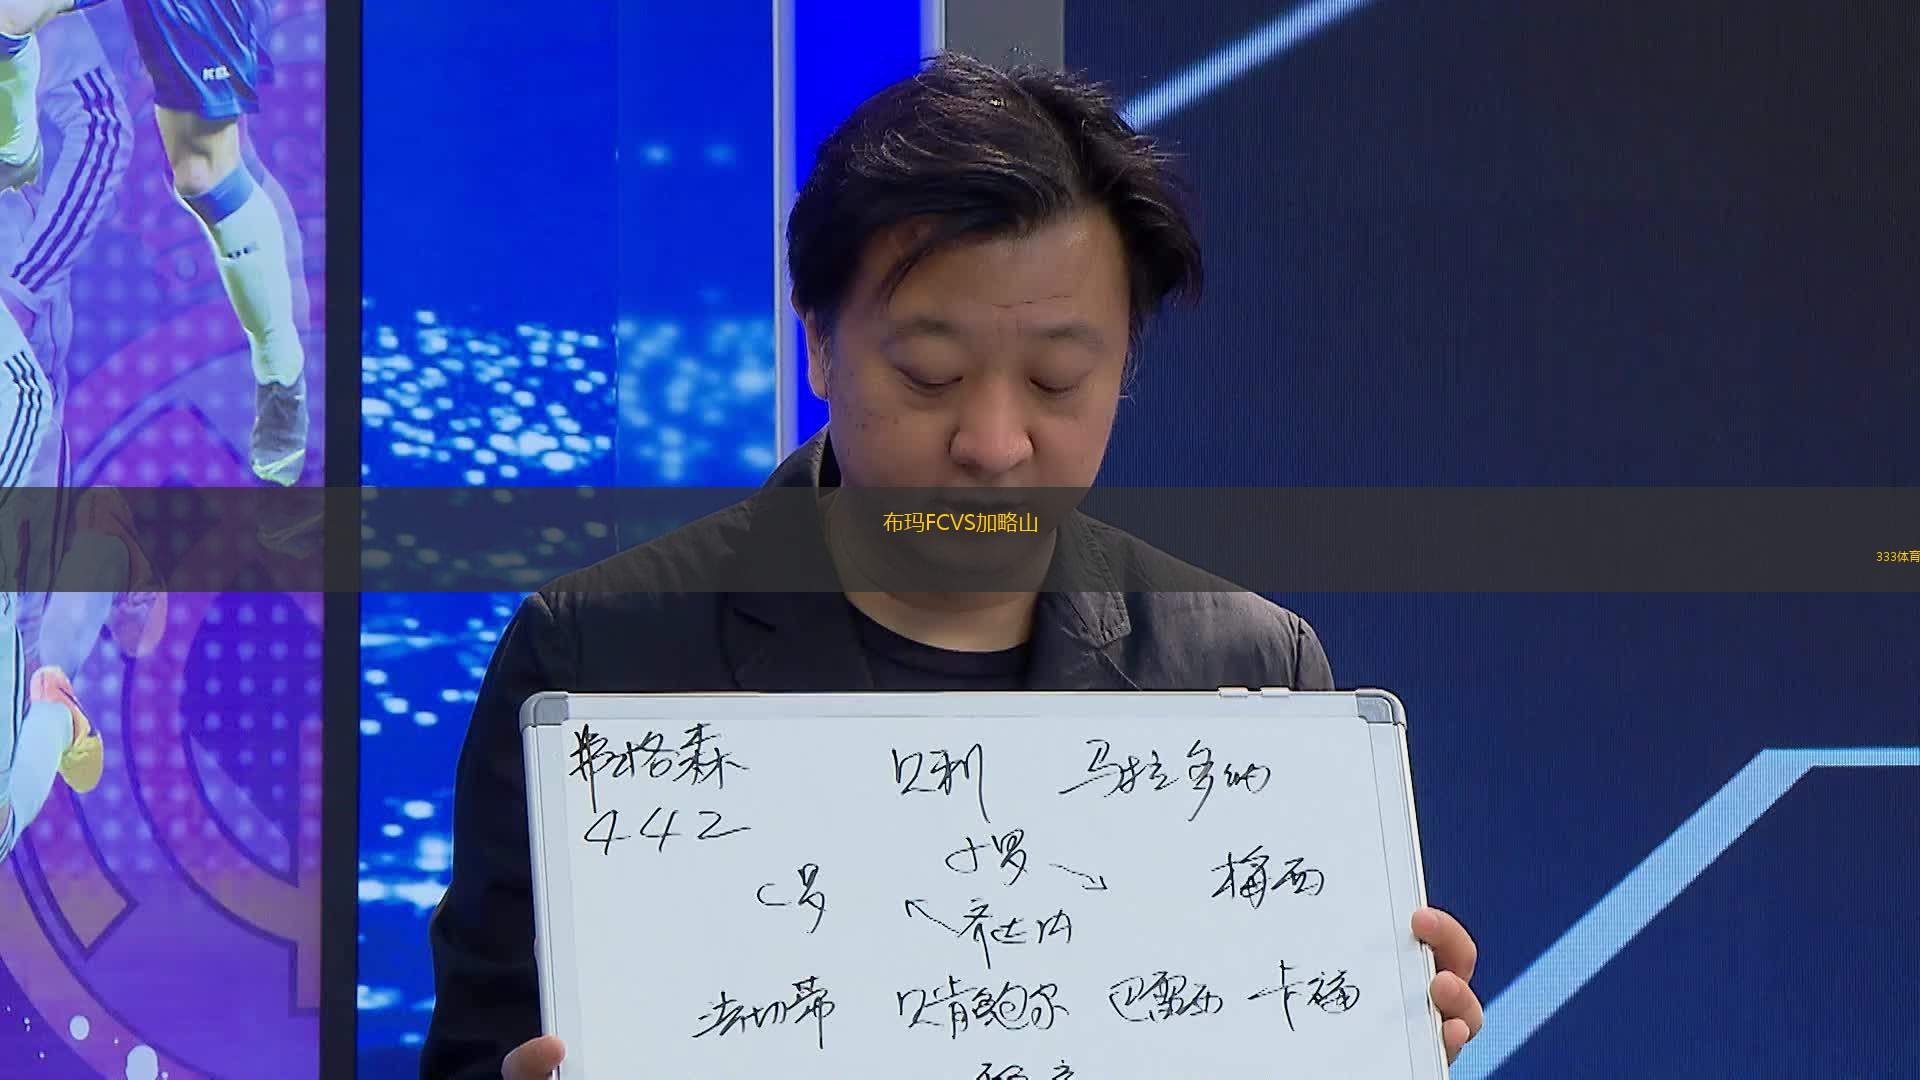 布玛FCVS加略山
333体育
弗格森 贝利 马拉多纳
442
小罗
C罗 梅西
齐达内
法切蒂 贝肯鲍尔 巴雷西 卡福